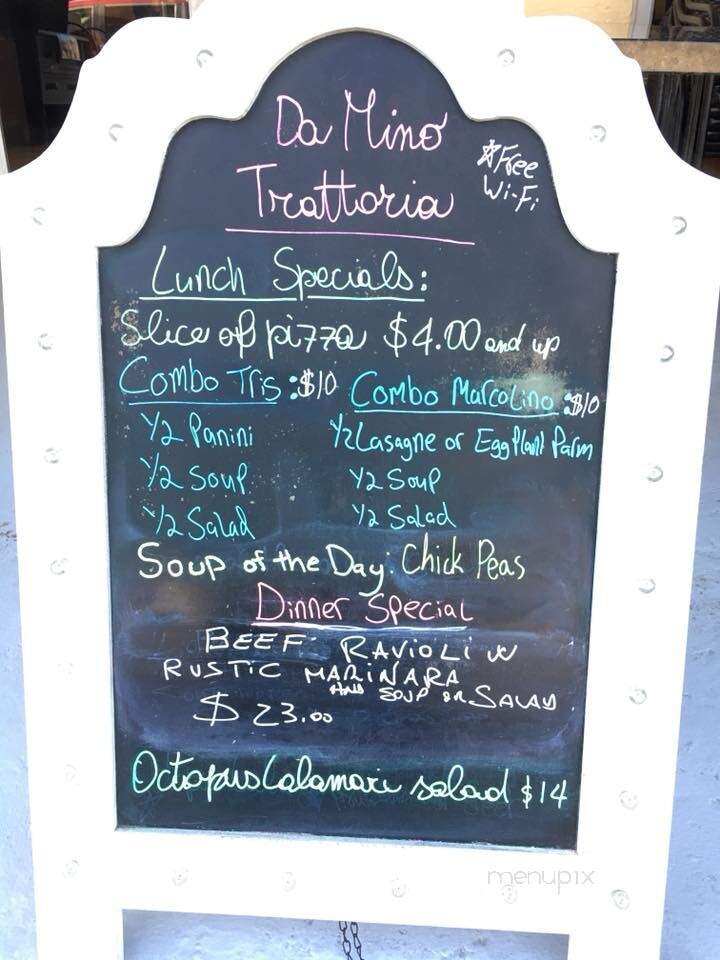 Da Mino
Trattoria
*Free
Wi-Fi
Lunch Specials:
Slice of pizza $4.00 and up
Combo Tris :$10
1/2 Panini
1/2 Soup
1/2 Salad
Combo Marcolino :$10
1/2 Lasagne or EggPlant Parm
1/2 Soup
1/2 Salad
Soup of the Day: Chick Peas
Dinner Special
BEEF RAVIOLI w
RUSTIC MARINARA
AND SOUP OR SALAD
$23.00
Octopus Calamari salad $14
menupix